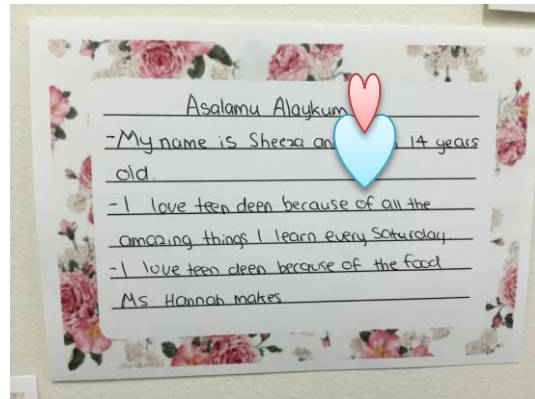 Asalamu Alaykum
-My name is Sheeza an 14 years
old.
-I love teen deen because of all the
amazing things I learn every Saturday.
-I love teen deen because of the food
Ms Hannah makes